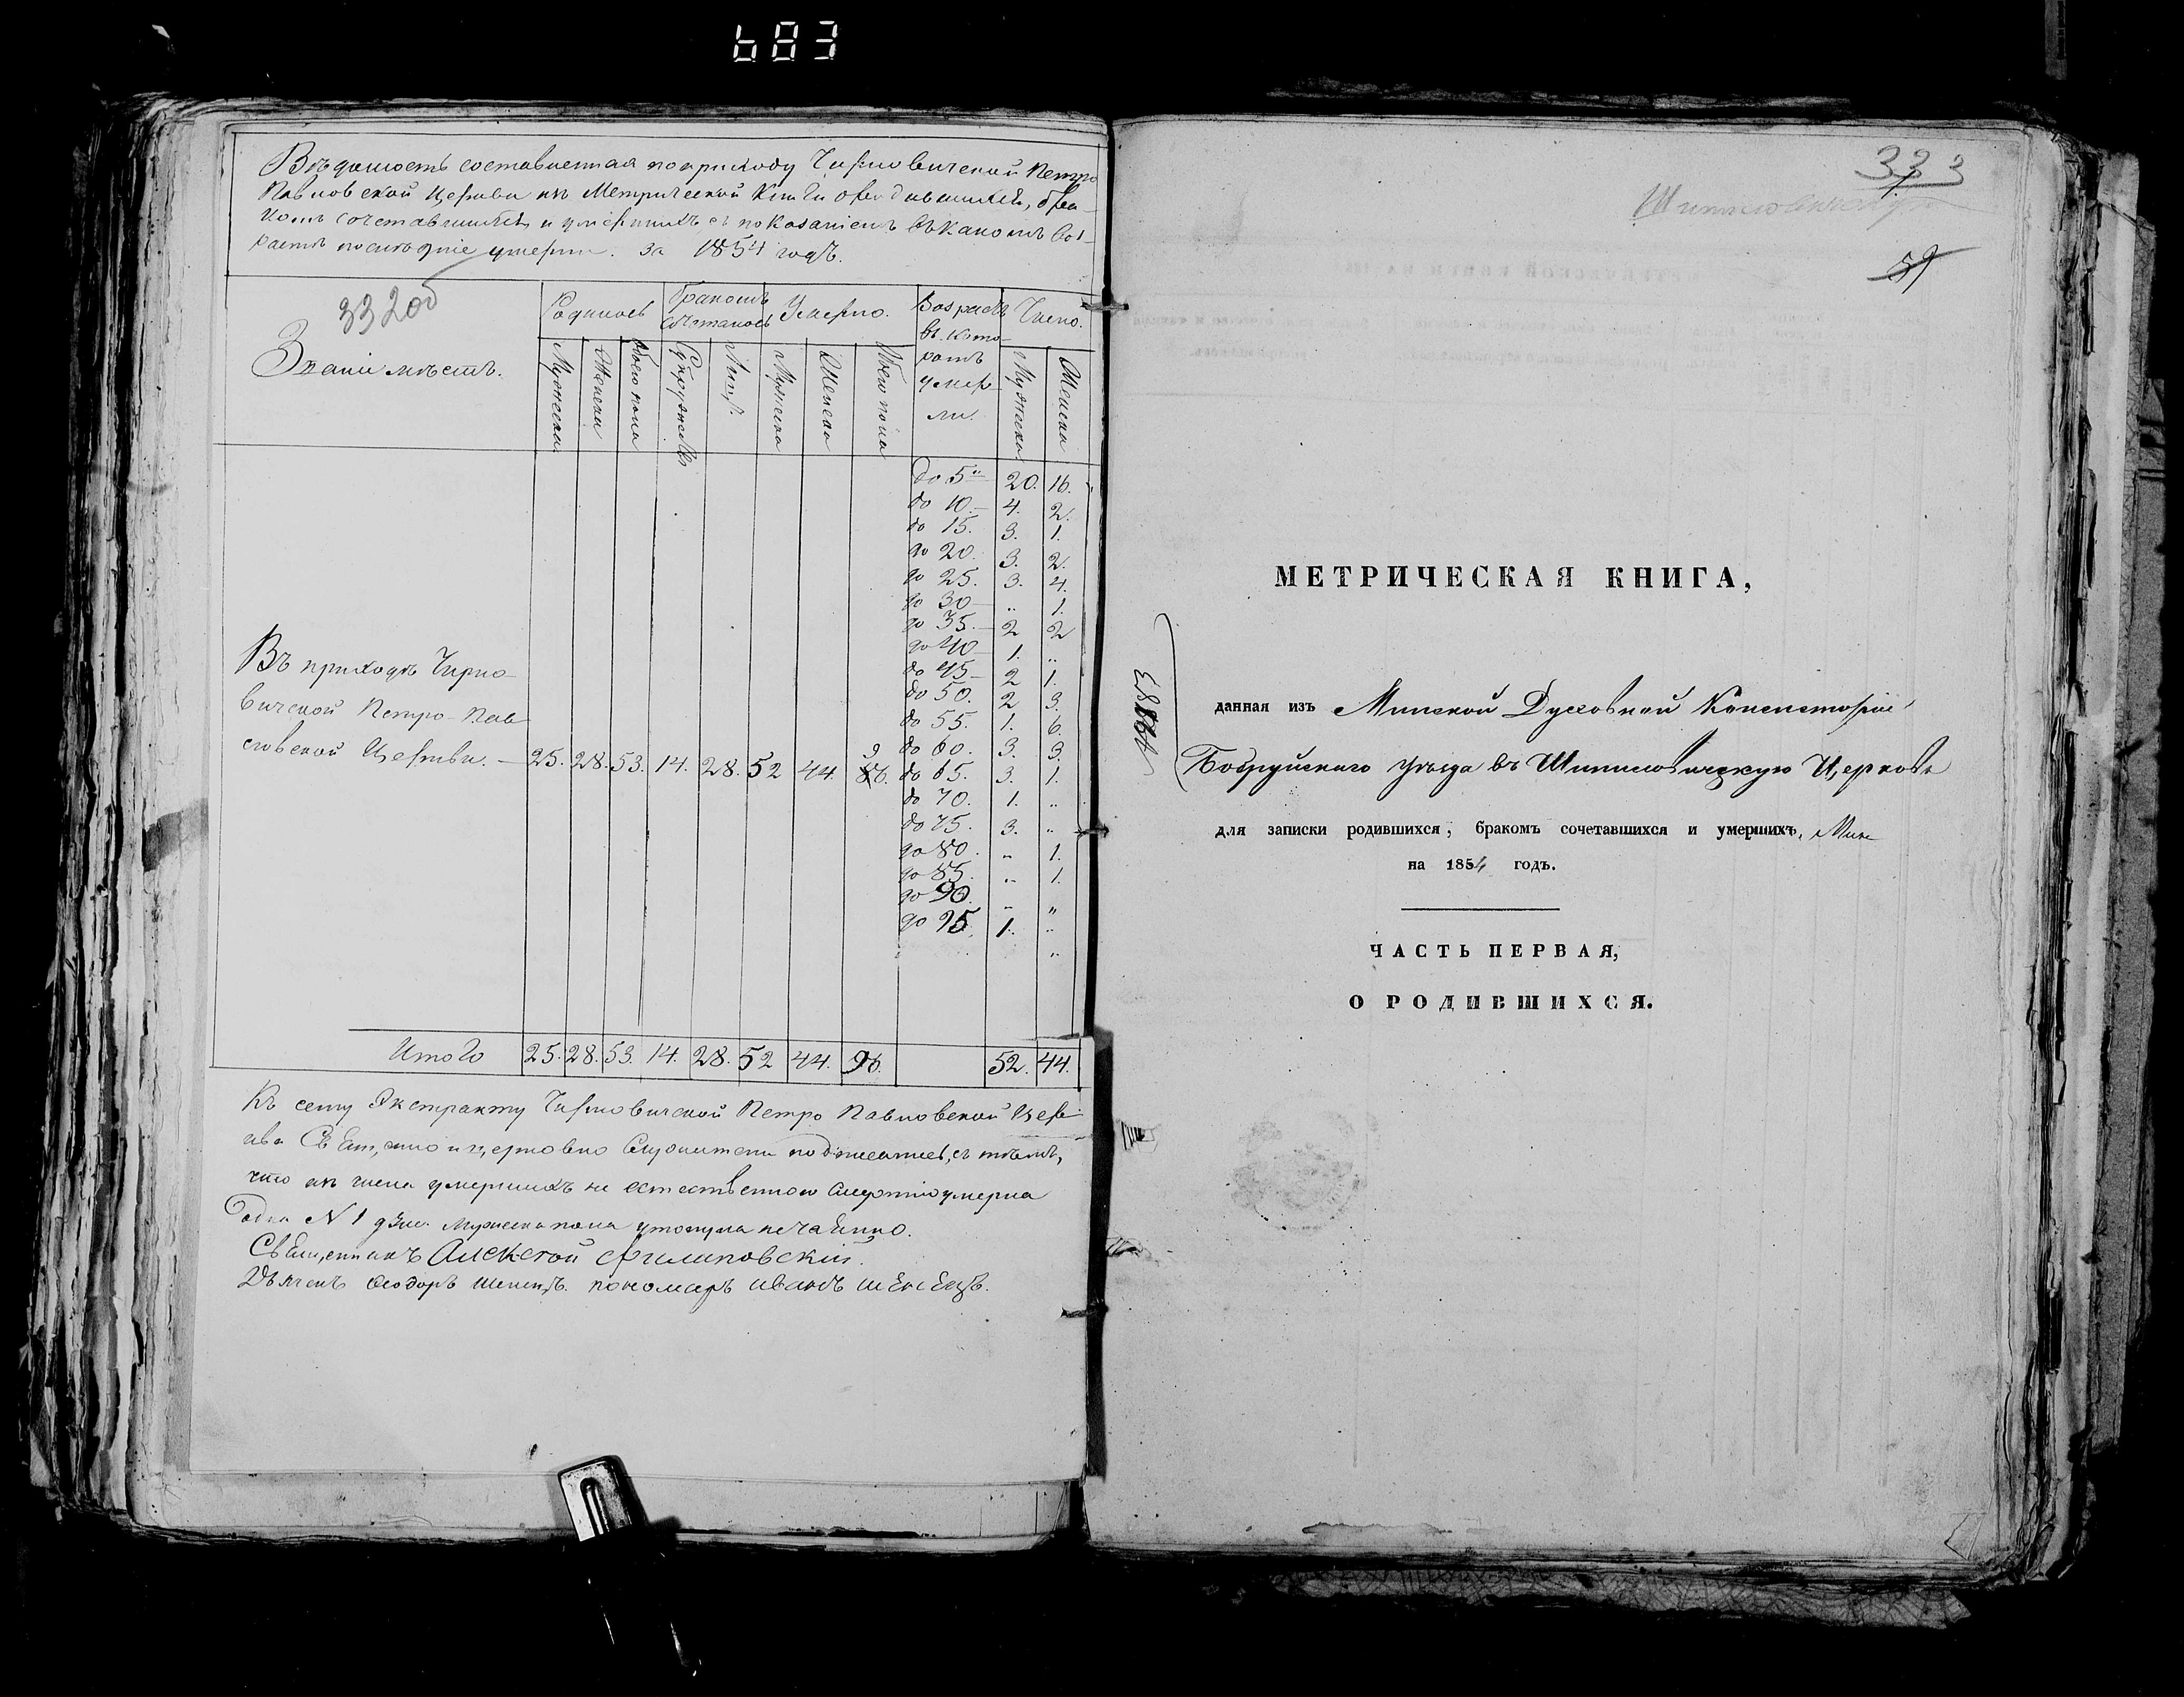 683
Вѣдомость составленная по приходу Чирковичской Петро
Павловской Церкви къ Метрической Книги о родившихся, бра-
комъ сочетавшихся и умершихъ съ показаніемъ въ какомъ воз-
растѣ послѣдніе умерли. за 1854 годъ.
332об
Званіе мѣстъ.
Родилось
Бракомъ сочеталось
Умерло.
Возрастъ въ кото-
ромъ
умер-
ли.
Число.
Мужеска Женска Обоего пола Супружествъ Лицъ. Мужеска Женска Обоего пола Мужеска Женска
до 5и 20. 16.
до 10. 4. 2.
до 15. 3. 1.
до 20. 3. 2.
до 25. 3. 4.
до 30 „ 1.
до 35. 2 2
до 40 1. „
до 45 2 1.
до 50. 2 3.
до 55. 1. 6.
до 60. 3. 3.
до 65. 3. 1.
до 70. 1. „
до 75. 3. „
до 80. „ 1.
до 85. „ 1.
до 90. „ „
до 95. 1. „
Въ приходѣ Чирко-
вичской Петро-Пав
ловской Церкви. — 25. 28. 53. 14. 28. 52 44. 96.
Итого 25. 28. 53. 14. 28. 52 44. 96. 52. 44.
Къ сему Экстракту Чирковичской Петро Павловской Цер-
кви Священно и церковно Служители подписались, съ тѣмъ,
что изъ числа умершихъ не естественною смертію умерла
одна N 1 душа Мужеска пола утонула нечаянно.
Священникъ Алексѣй Филиповскій.
Дьячекъ Ѳеодоръ Шенецъ. пономарь Иванъ Шенецъ.
333
59
МЕТРИЧЕСКАЯ КНИГА,
данная изъ Минской Духовной Консисторіи
Бобруйскаго уѣзда въ Шипиловичскую Церковь
для записки родившихся, бракомъ сочетавшихся и умершихъ,
на 1854 годъ.
ЧАСТЬ ПЕРВАЯ,
О РОДИВШИХСЯ.